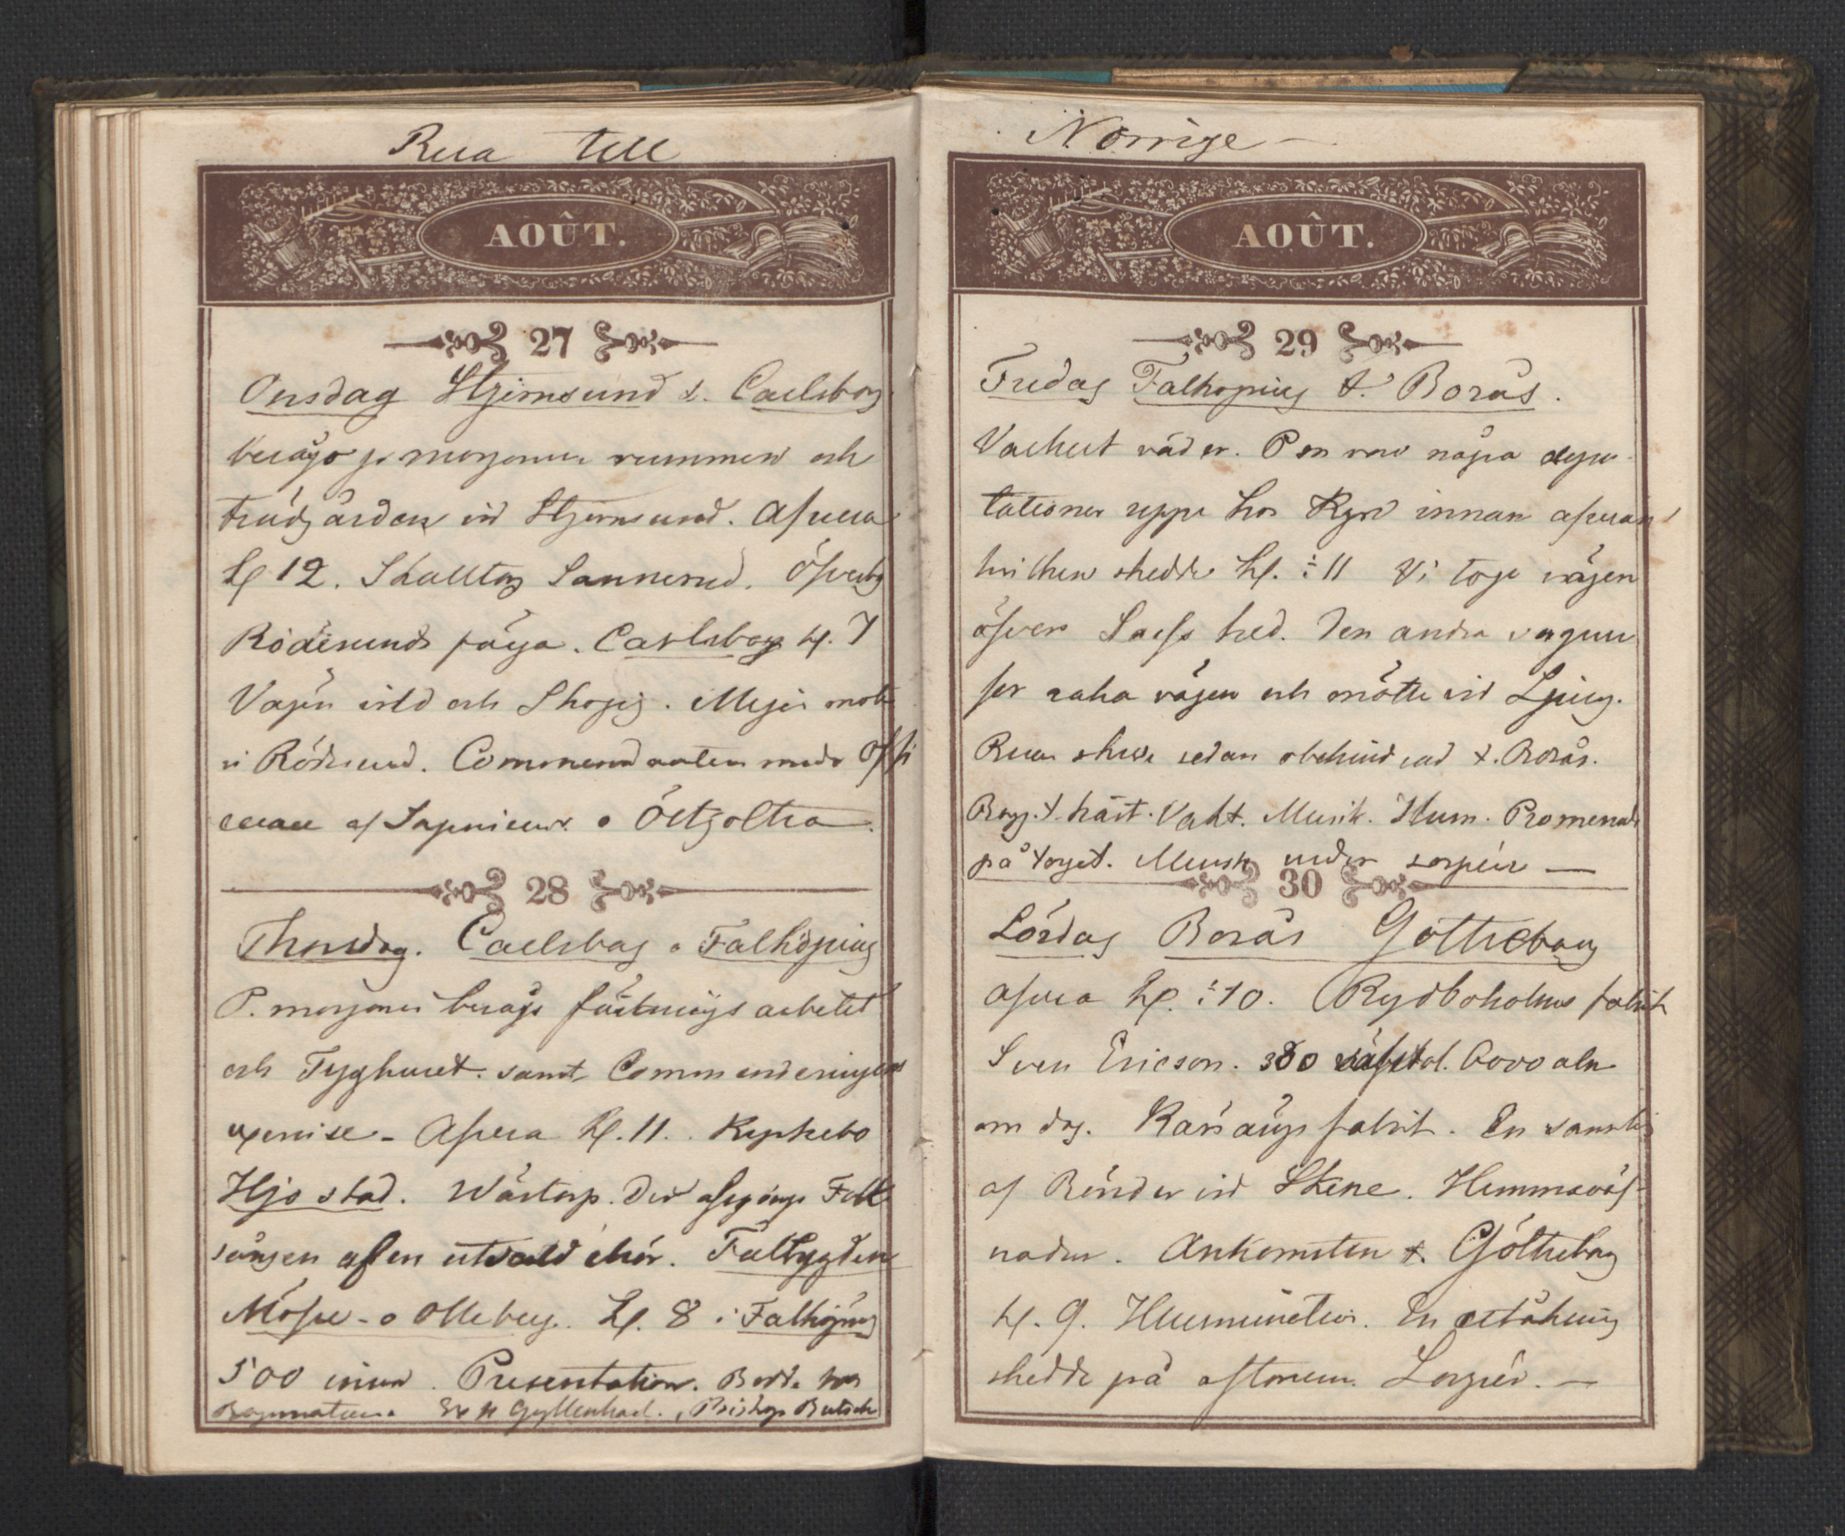 Resa till
AOÛT.
27
Onsdag Stjernsund t. Carlsborg
besågo p. morgonen rummen och
trädgården vid Stjernsund. Afresa
Kl 12. Skalltorp Sannerud. Öfver
Rödesunds färja. Carlsborg kl. 7
Vägen vild och Skogig. Mejer mötte
vi Rödesund. Commendanten med Offi
cerare af Ingenieur o Östgöttra.
28
Thorsdag. Carlsborg o Falköping
P. morgonen besågs fästnings arbetet
och Tyghuset. samt Commenderingens
exercise - Afresa kl. 11. Kyrkebo
Hjo stad. Wårtorp. Der afsjöngs Folk
sången af en utvald chör. Falbygden
Mösse - o Olleberg. Kl. 8 i Falköping
500 invan. Presentation. Bodde hos
Borgmästaren. Gyllenhaal. Biskop Butsch
Norrige -
AOÛT.
29
Fredag Falkoping t. Borås.
Vackert väder. P. sn voro några depu-
tationer uppe hos Kgn innan afresan
hvilken skedde kl. ½ 11 Vi togo vägen
öfver Saefs hed. Den andra vagnen
for raka vägen och mötte vid Ljung.
Resan skedde sedan obehindrad t. Borås.
Borg. t. häst. Vakt. Musik. Illum. Promenad
på torget. Musik under soupéen —
30
Lördag Borås Gottheborg
afresa kl. ½ 10. Rydboholms fabrik
Sven Ericson. 380 väfstol. 6000 aln
om dag. Kärnängs fabrik. En samling
af Bönder vid Skene. Hemmaväf-
nader. Ankomsten t. Götheborg
kl. 9. Illumination. En
skedde på aftonen. Soupér. —